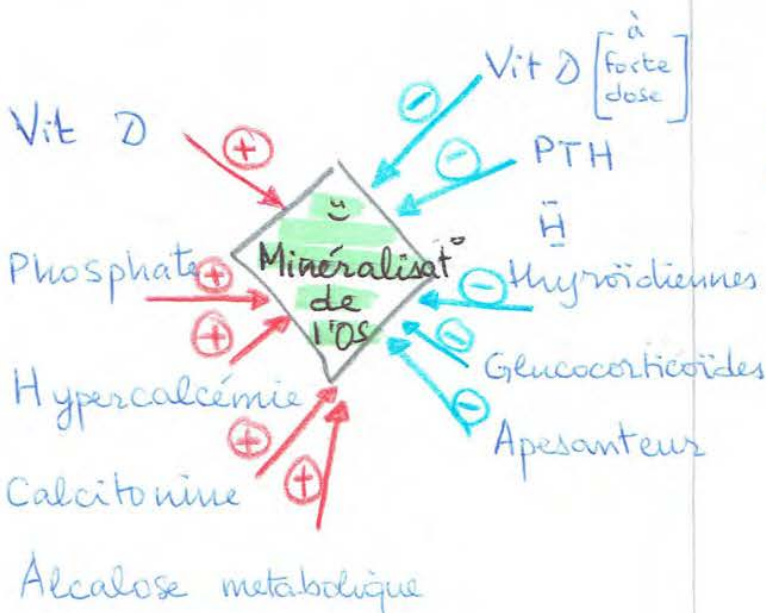 Vit D
⊕
Phosphate
⊕
⊕
Hypercalcémie
⊕
Calcitonine
⊕
Alcalose metabolique
Minéralisat°
de
l'OS
Vit D [à
forte
dose]
⊖
PTH
⊖
H
thyroïdiennes
⊖
Glucocorticoïdes
⊖
Apesanteur
⊖